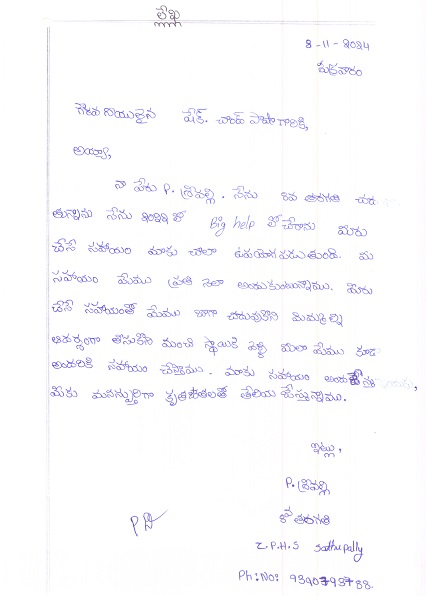 లేఖ
8-11-2024
శుక్రవారం
గౌరవనీయులైన షేక్. చాంద్ పాషా గారికి,
అయ్యా,
నా పేరు P. శ్రీవల్లి. నేను 8వ తరగతి చదు
తున్నాను నేను 2022 లో Big help లో చేరాను మీరు
చేసే సహాయం మాకు చాలా ఉపయోగపడుతుంది. మీ
సహాయం మేము ప్రతి నెలా అందుకుంటున్నాము. మీరు
చేసే సహాయంతో మేము బాగా చదువుకొని మిమ్మల్ని
ఆదర్శంగా తీసుకొని మంచి స్థాయికి వెళ్లి మీలా మేము కూడా
అందరికి సహాయం చేస్తాము. మాకు సహాయం
మీకు మనస్ఫూర్తిగా కృతజ్ఞతలతో తెలియ చేస్తున్నాము.
ఇట్లు,
P. శ్రీవల్లి
8వ తరగతి
Z.P.H.S Sathupally
Ph: No: 9390793788.